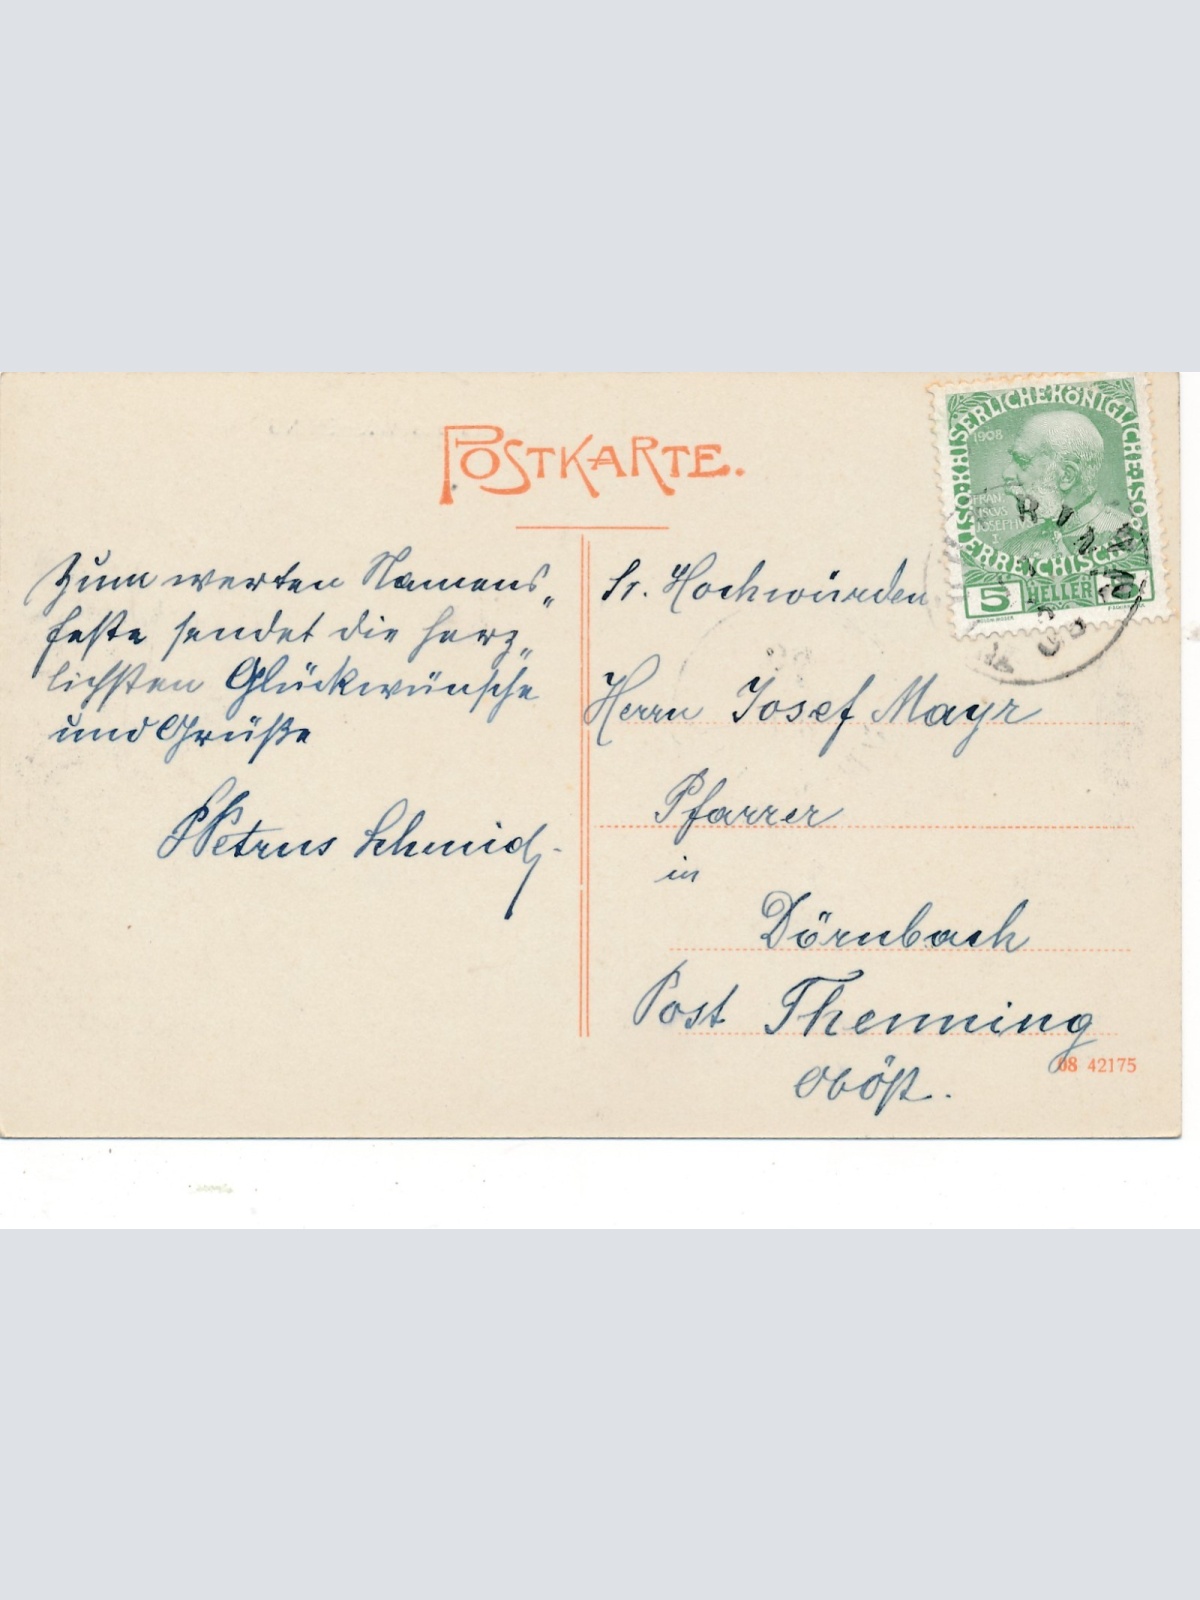 POSTKARTE.
KAISERLICHE KÖNIGLICHE
ÖSTERREICHISCHE
1908
FRAN
ISCVS
IOSEPHVS
I
5 HELLER
Zum werten Namens„
feste sendet die herz„
lichsten Glückwünsche
und Grüße
Petrus Schmid.
Sr. Hochwürden
Herrn Josef Mayr
Pfarrer
in
Dörnbach
Post Thenning
Oböst.
08 42175